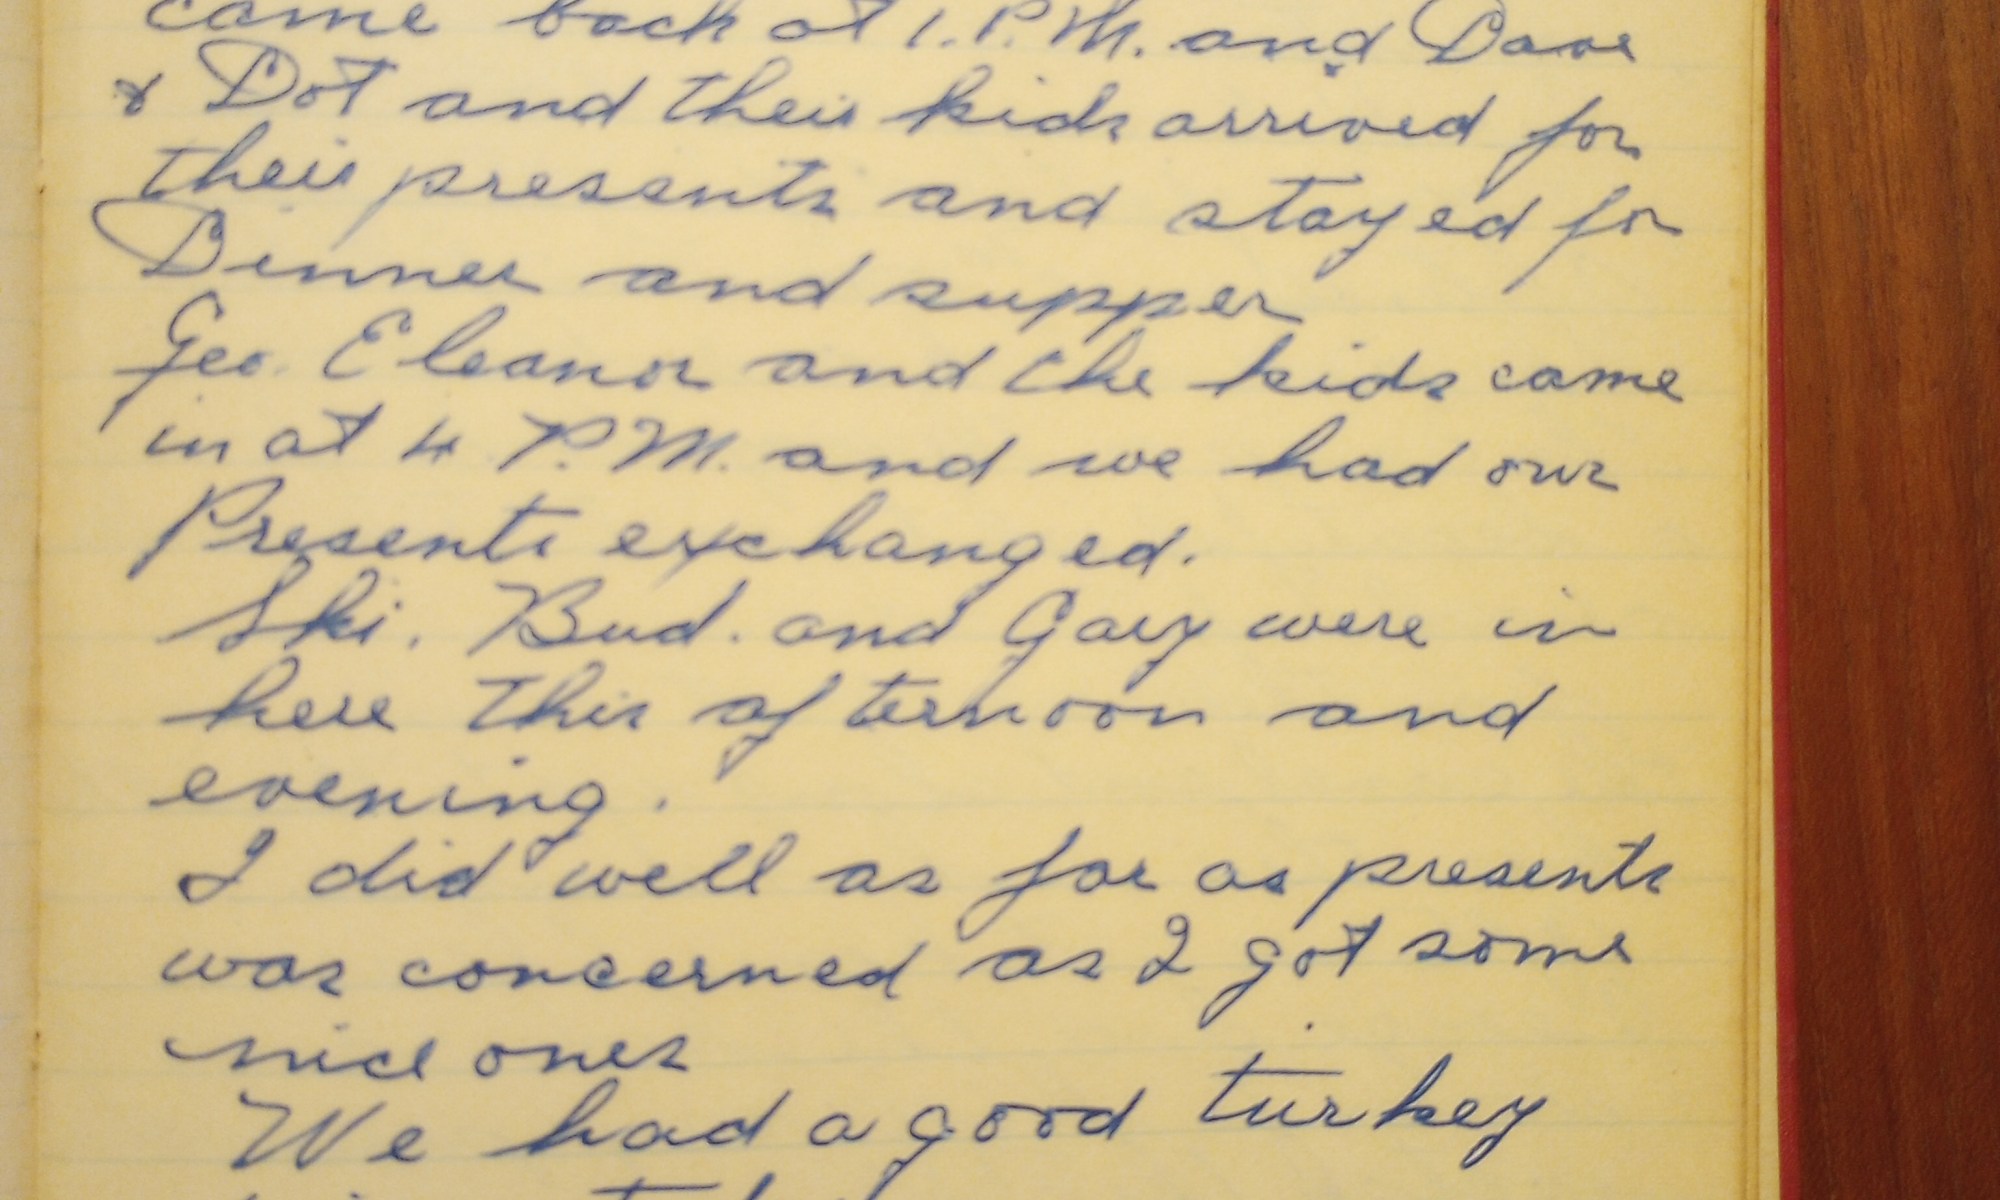 came back at 1. P.M. and Dave
& Dot and their kids arrived for
their presents and stayed for
Dinner and supper
Geo. Eleanor and the kids came
in at 4 P.M. and we had our
Presents exchanged.
Ski. Bud. and Gary were in
here this afternoon and
evening.
I did well as far as presents
was concerned as I got some
nice ones
We had a good turkey